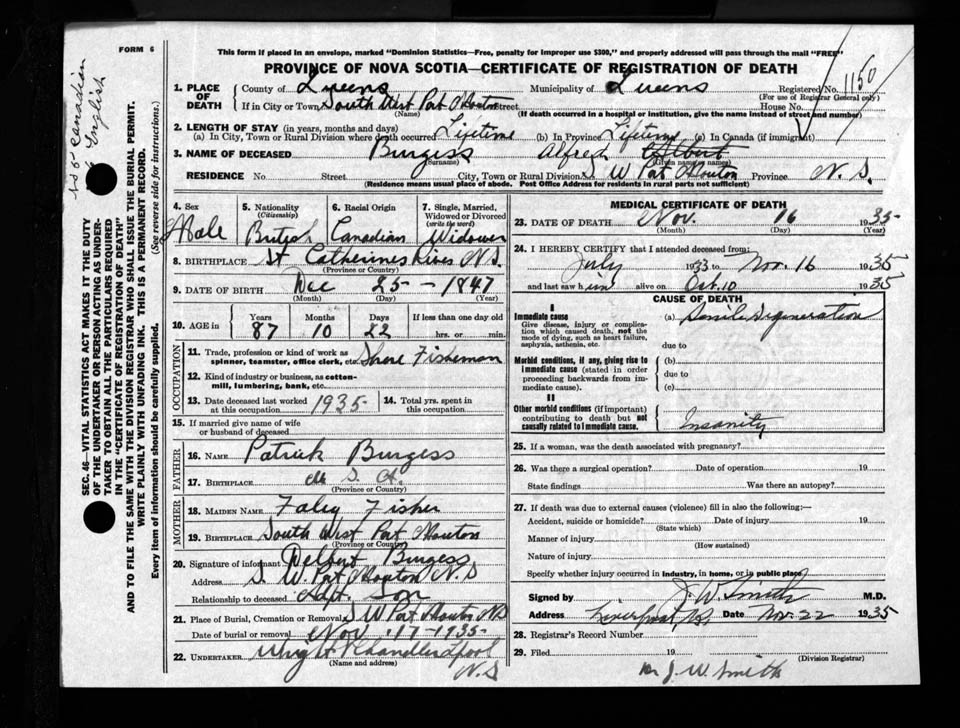 FORM 6
This form if placed in an envelope, marked "Dominion Statistics—Free, penalty for improper use $300," and properly addressed will pass through the mail "FREE"
PROVINCE OF NOVA SCOTIA—CERTIFICATE OF REGISTRATION OF DEATH
1. PLACE OF DEATH County of Queens Municipality of Queens Registered No. 1150
(For use of Registrar General only)
If in City or Town South West Port Mouton Street House No.
(Name) (If death occurred in a hospital or institution, give the name instead of street and number)
2. LENGTH OF STAY (in years, months and days)
(a) In City, Town or Rural Division where death occurred Lifetime (b) In Province Lifetime (c) In Canada (if immigrant)
3. NAME OF DECEASED Burgess Alfred Albert
(Surname) (Given name or names)
RESIDENCE No. Street City, Town or Rural Division S. W Port Mouton Province N. S.
(Residence means usual place of abode. Post Office Address for residents in rural parts not sufficient)
4. Sex 5. Nationality (Citizenship) 6. Racial Origin 7. Single, Married, Widowed or Divorced (write the word)
Male British Canadian Widower
8. BIRTHPLACE St Catherines River N.S.
(Province or Country)
9. DATE OF BIRTH Dec 25 - 1847
(Month) (Day) (Year)
10. AGE in Years Months Days If less than one day old
87 10 22 hrs. or min.
OCCUPATION
11. Trade, profession or kind of work as spinner, teamster, office clerk, etc. Shore Fisherman
12. Kind of industry or business, as cotton-mill, lumbering, bank, etc.
13. Date deceased last worked at this occupation 1935 14. Total yrs. spent in this occupation
15. If married give name of wife or husband of deceased
FATHER
16. NAME Patrick Burgess
17. BIRTHPLACE U. S. A.
(Province or Country)
MOTHER
18. MAIDEN NAME Fisher
19. BIRTHPLACE South West Port Mouton
(Province or Country)
20. Signature of informant Delbert Burgess
Address S. W. Port Mouton N.S
Relationship to deceased Adpt. Son
21. Place of Burial, Cremation or Removal S W Port Mouton NS
Date of burial or removal Nov 17 - 1935-
22. UNDERTAKER Wright Chandler Lpool
(Name and address) N.S
MEDICAL CERTIFICATE OF DEATH
23. DATE OF DEATH Nov. 16 1935
(Month) (Day) (Year)
24. I HEREBY CERTIFY that I attended deceased from:
July 1933 to Nov. 16 1935
and last saw him alive on Oct. 10 1935
CAUSE OF DEATH
I
Immediate cause (a) Senile Degeneration
Give disease, injury or complication which caused death, not the mode of dying, such as heart failure, asphyxia, asthenia, etc.
due to
Morbid conditions, if any, giving rise to immediate cause (stated in order proceeding backwards from immediate cause).
(b)
due to
(c)
II
Other morbid conditions (if important) contributing to death but not causally related to immediate cause.
Insanity
25. If a woman, was the death associated with pregnancy?
26. Was there a surgical operation? Date of operation 19
State findings Was there an autopsy?
27. If death was due to external causes (violence) fill in also the following:—
Accident, suicide or homicide? Date of injury 19
(State which)
Manner of injury
(How sustained)
Nature of injury
Specify whether injury occurred in industry, in home, or in public place
Signed by J. W. Smith M.D.
Address Liverpool, N.S. Date Nov. 22 1935
28. Registrar's Record Number
29. Filed 19
(Division Registrar)
Dr J. W. Smith
SEC. 46—VITAL STATISTICS ACT MAKES IT THE DUTY
OF THE UNDERTAKER OR PERSON ACTING AS UNDER-
TAKER TO OBTAIN ALL THE PARTICULARS REQUIRED
IN THE "CERTIFICATE OF REGISTRATION OF DEATH"
TO FILE THE SAME WITH THE DIVISION REGISTRAR WHO SHALL ISSUE THE BURIAL PERMIT.
WRITE PLAINLY WITH UNFADING INK. THIS IS A PERMANENT RECORD.
Every item of information should be carefully supplied. (See reverse side for instructions.)
Canadian
English